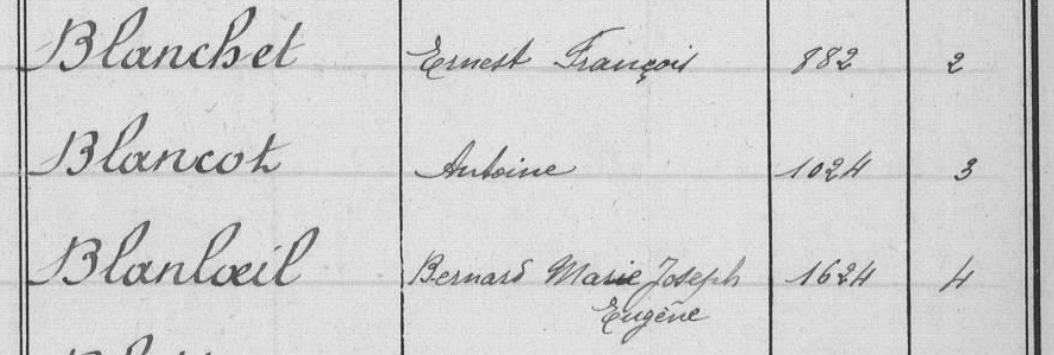 Blanchet Ernest François 882 2
Blancot Antoine 1024 3
Blanlœil Bernard Marie Joseph 1624 4
Eugène